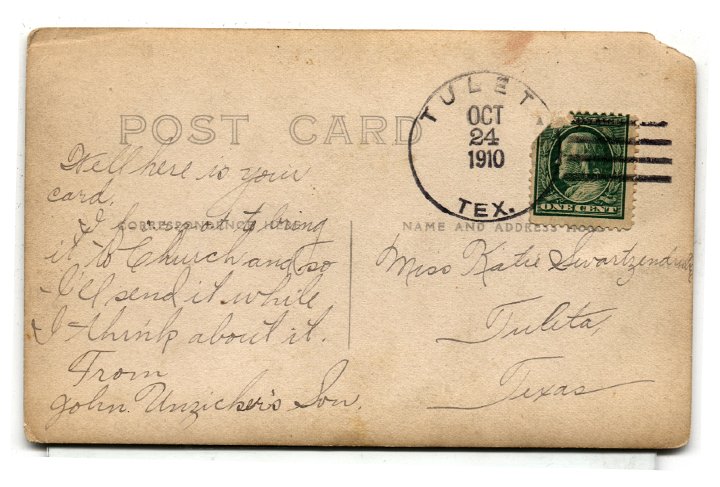 POST CARD
TULET
OCT
24
1910
TEX.
ONE CENT
Well here is your
card.
I forget to bring
it to Church and so
I'll send it while
I think about it.
From
John Unzicker's Son.
CORRESPONDENCE HERE
NAME AND ADDRESS HERE
Miss Katie Swartzendruber
Tuleta,
Texas